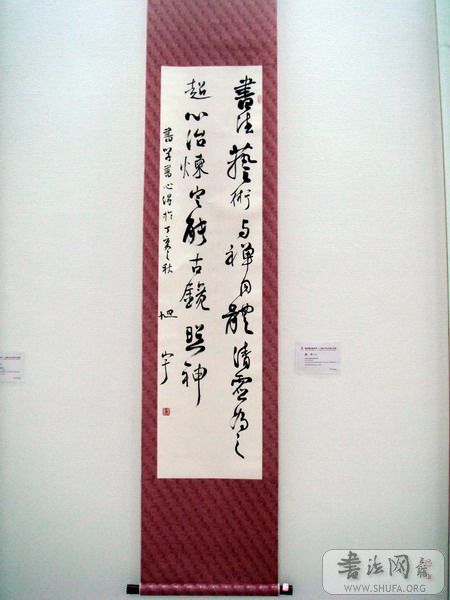 書法藝術与禪體清為之
超心冶煉能古鏡照神
書學書心得於丁亥之秋
旭宇
書法网
WWW.SHUFA.ORG